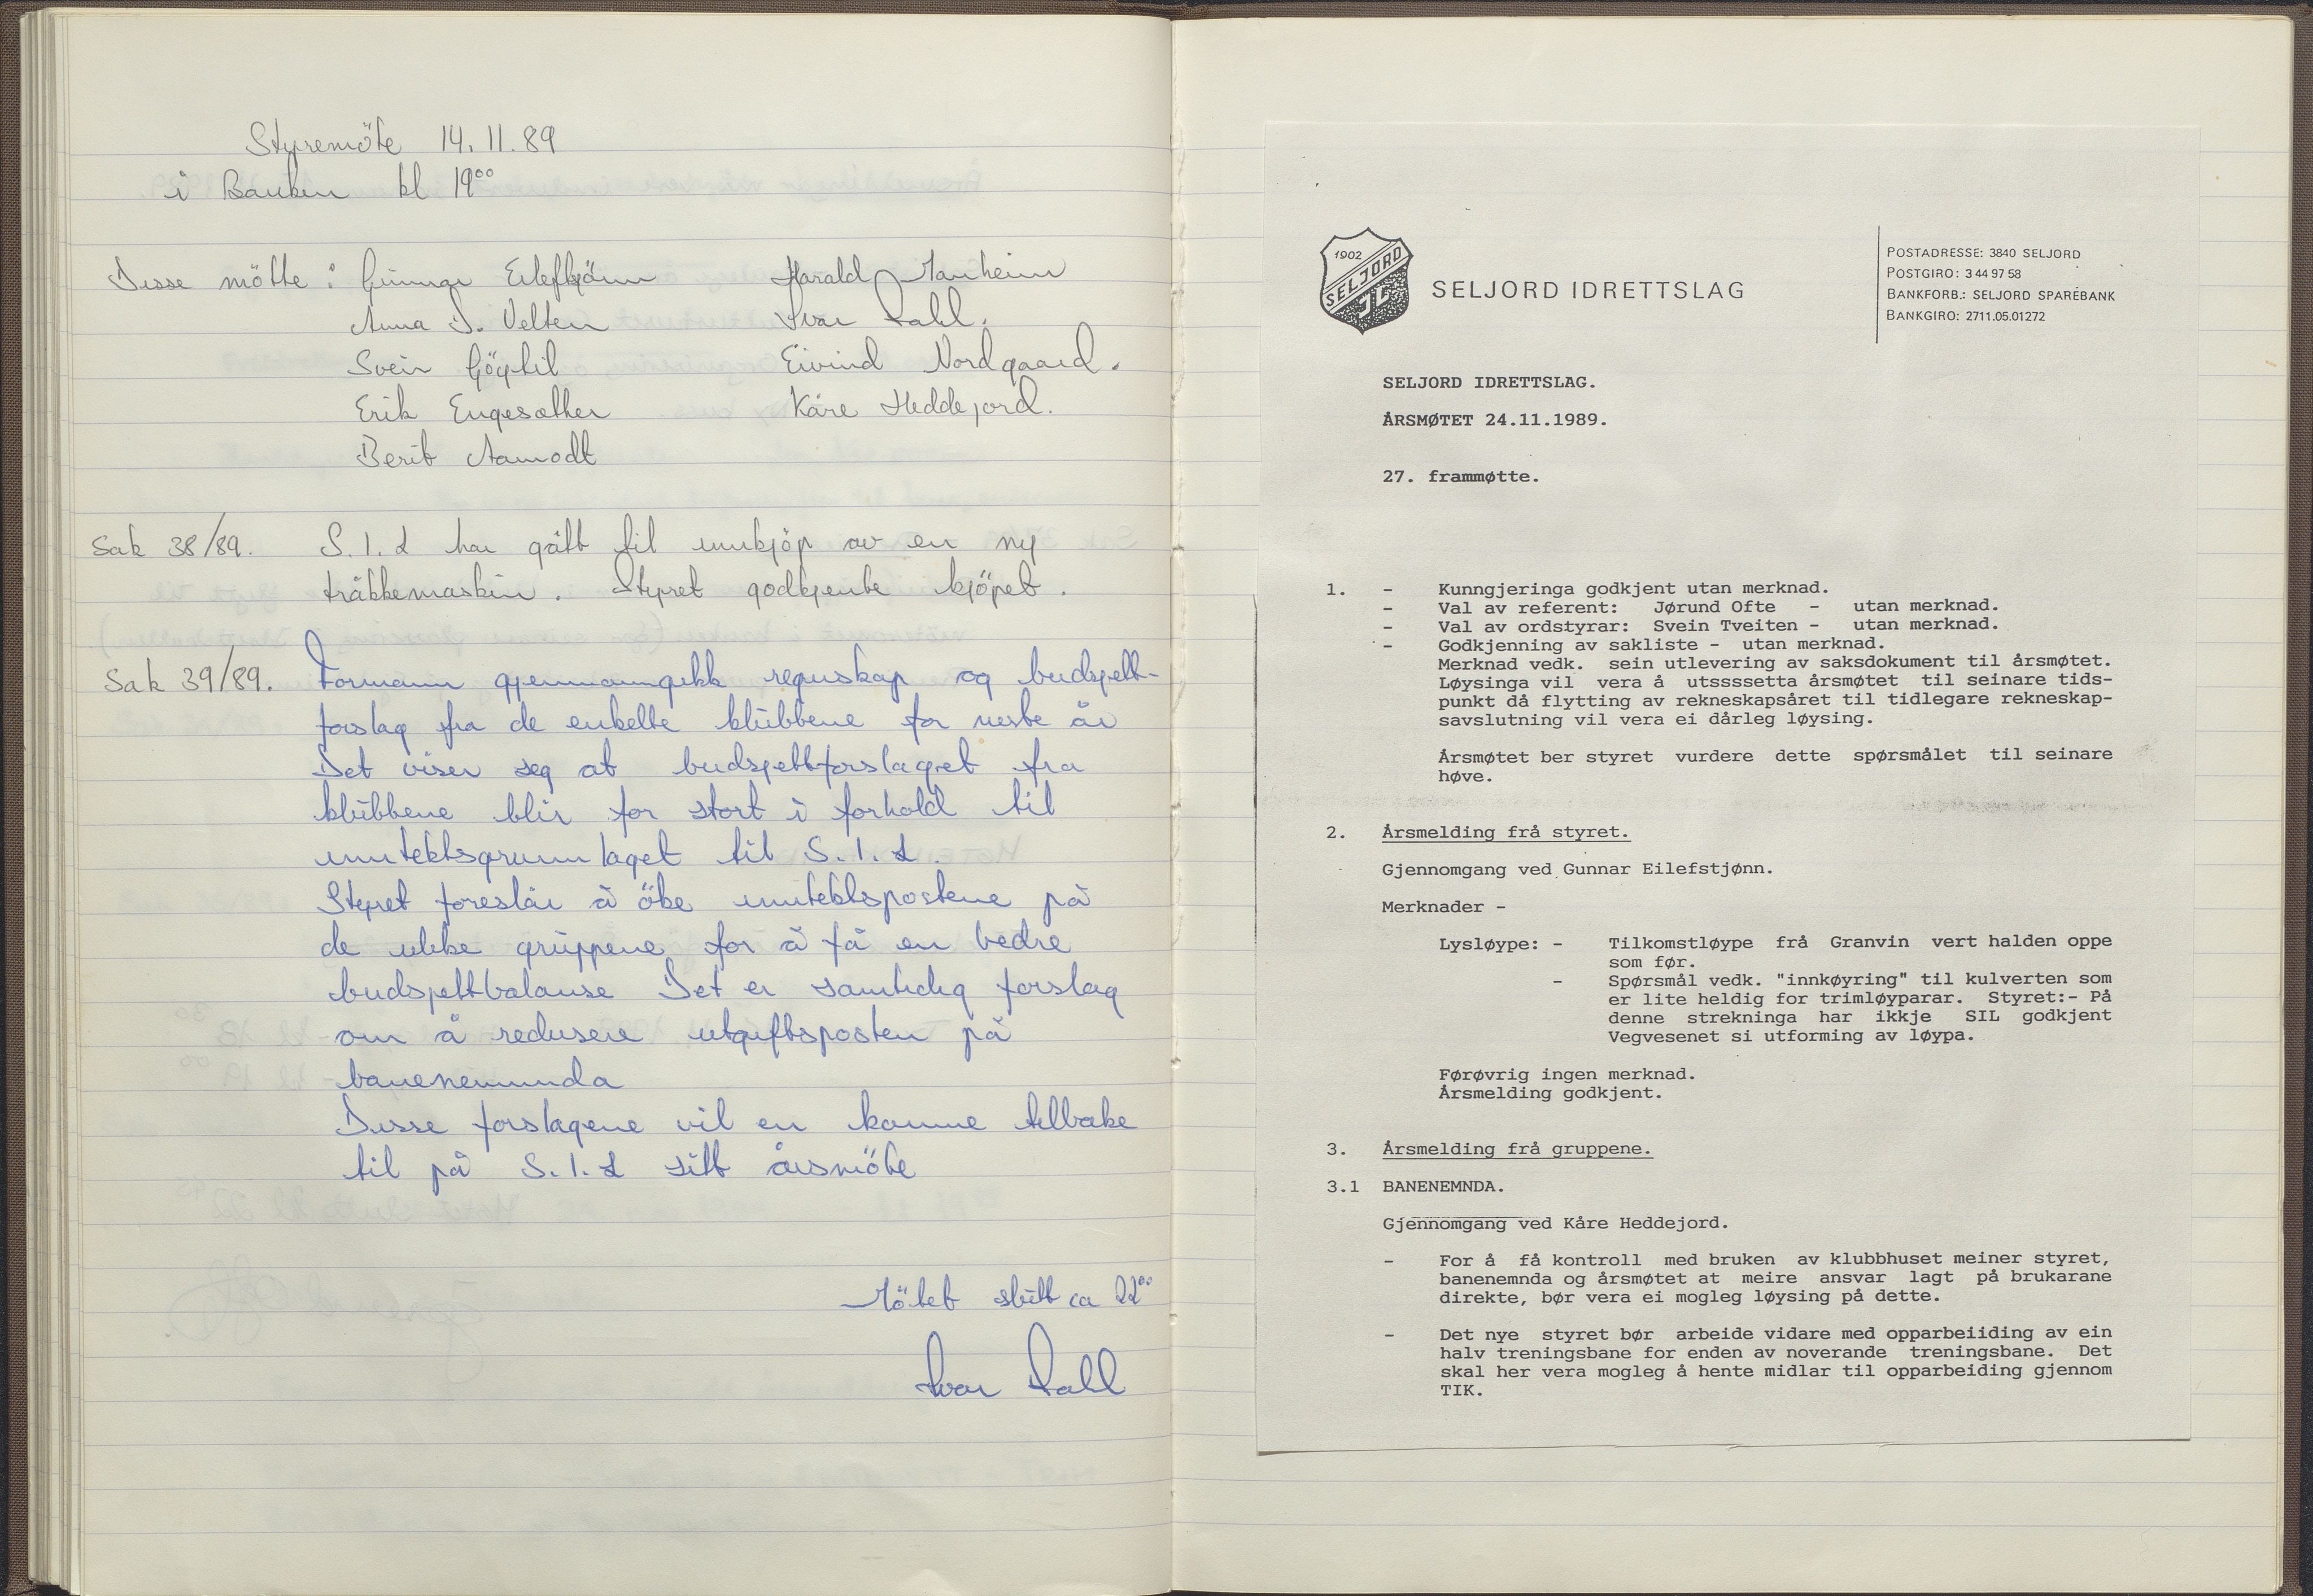 Styremöte 14.11.89
i Banken kl 19⁰⁰
Disse mötte: Gunnar Eilefstjönn Harald Manheim
Anna S. Velten Ivar Dahl.
Svein Göytil Eivind Nordgaard.
Erik Engesæther Kåre Heddejord.
Berit Aamodt
Sak 38/89. S.I.L har gått til innkjöp av en ny
tråkkemaskin. Styret godkjente kjöpet.
Sak 39/89. Formann gjennomgikk regnskap og budsjett-
forslag fra de enkelte klubbene for neste år
Det viser seg at budsjettforslaget fra
klubbene blir for stort i forhold til
inntektsgrunnlaget til S.I.L.
Styret foreslår å öke inntektspostene på
de ulike gruppene for å få en bedre
budsjettbalanse Det er samtidig forslag
om å redusere utgiftsposten på
banenemnda
Disse forslagene vil en komme tilbake
til på S.I.L sitt årsmöte
Mötet slutt ca 22⁰⁰
Ivar Dahl
1902
SELJORD
IL
SELJORD IDRETTSLAG
POSTADRESSE: 3840 SELJORD
POSTGIRO: 3 44 97 58
BANKFORB.: SELJORD SPAREBANK
BANKGIRO: 2711.05.01272
SELJORD IDRETTSLAG.
ÅRSMØTET 24.11.1989.
27. frammøtte.
1. - Kunngjeringa godkjent utan merknad.
- Val av referent: Jørund Ofte - utan merknad.
- Val av ordstyrar: Svein Tveiten - utan merknad.
- Godkjenning av sakliste - utan merknad.
Merknad vedk. sein utlevering av saksdokument til årsmøtet.
Løysinga vil vera å utssssetta årsmøtet til seinare tids-
punkt då flytting av rekneskapsåret til tidlegare rekneskap-
savslutning vil vera ei dårleg løysing.
Årsmøtet ber styret vurdere dette spørsmålet til seinare
høve.
2. Årsmelding frå styret.
Gjennomgang ved Gunnar Eilefstjønn.
Merknader -
Lysløype: - Tilkomstløype frå Granvin vert halden oppe
som før.
- Spørsmål vedk. "innkøyring" til kulverten som
er lite heldig for trimløyparar. Styret:- På
denne strekninga har ikkje SIL godkjent
Vegvesenet si utforming av løypa.
Førøvrig ingen merknad.
Årsmelding godkjent.
3. Årsmelding frå gruppene.
3.1 BANENEMNDA.
Gjennomgang ved Kåre Heddejord.
- For å få kontroll med bruken av klubbhuset meiner styret,
banenemnda og årsmøtet at meire ansvar lagt på brukarane
direkte, bør vera ei mogleg løysing på dette.
- Det nye styret bør arbeide vidare med opparbeiiding av ein
halv treningsbane for enden av noverande treningsbane. Det
skal her vera mogleg å hente midlar til opparbeiding gjennom
TIK.